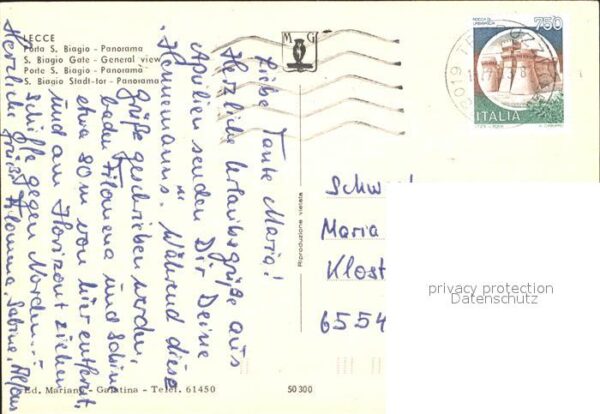 LECCE
Porta S. Biagio - Panorama
S. Biagio Gate - General view
Porte S. Biagio - Panorama
S. Biagio Stadt-tor - Panorama
M G
ROCCA DI URBISAGLIA
750
ITALIA
Liebe Tante Maria!
Herzliche Urlaubsgrüße aus
Apulien senden Dir Deine
"Hannemanns". Während diese
Grüße geschrieben werden,
baden Filomena und Sabine
etwa 80 m von hier entfernt,
und am Horizont ziehen
Schiffe gegen Norden...
Herzliche Grüße Filomena, Sabine, Alfons
Riproduzione vietata
Schw
Maria
Klost
6554
privacy protection
Datenschutz
Ed. Mariano - Galatina - Telef. 61450
50300